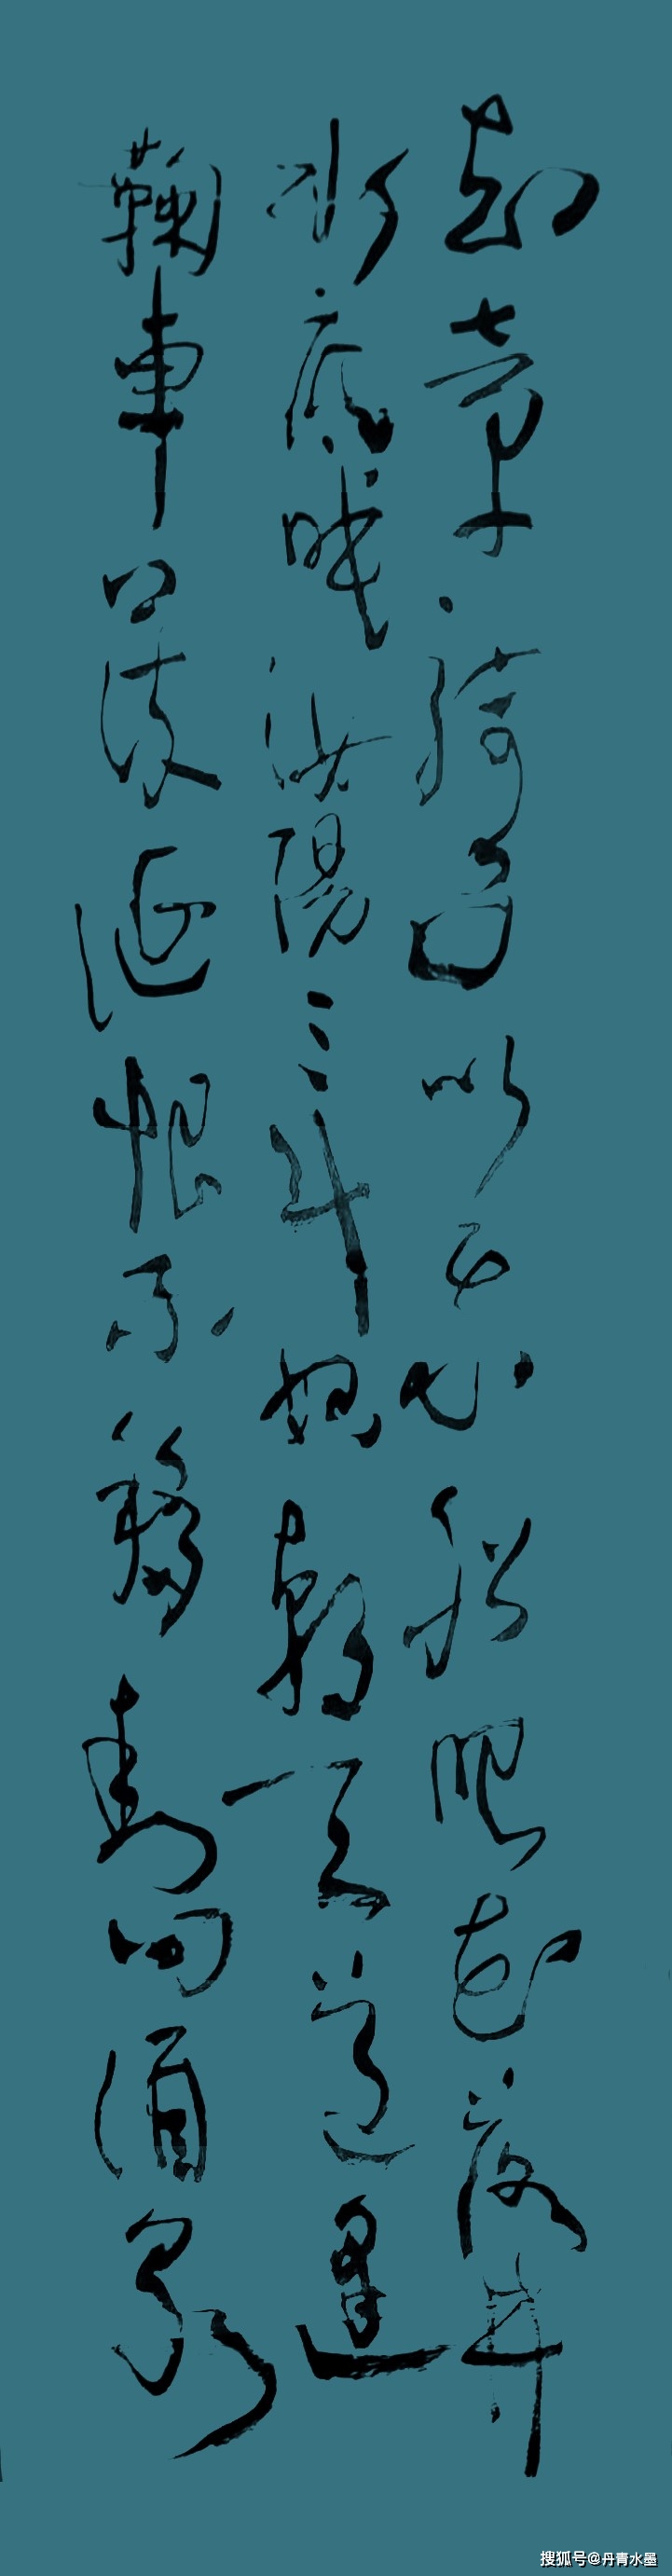 知章骑马似乘船眼花落井
水底眠汝陽三斗始朝天道逢
麴車口流涎恨不移封向酒泉
搜狐号@丹青水墨